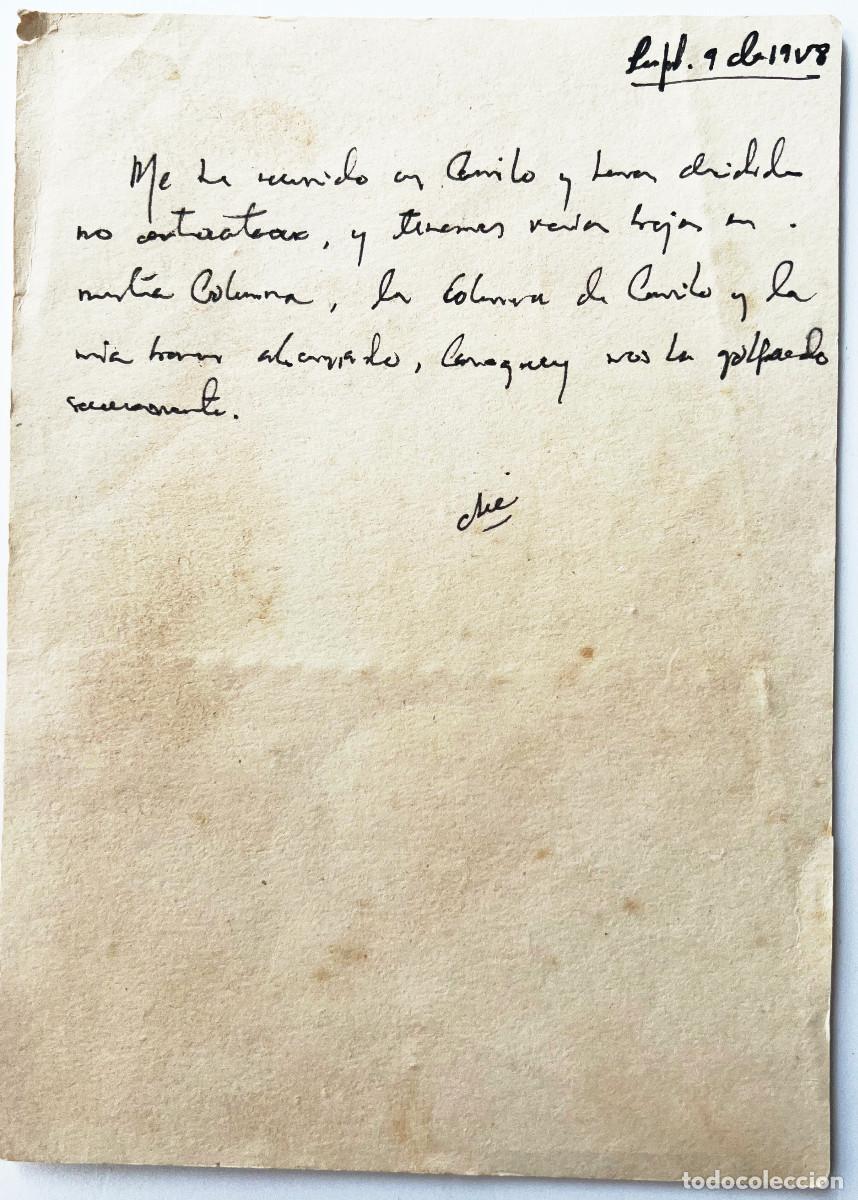 Sept. 9 de 1958
Me he reunido con Camilo y hemos decidido
no contraatacar, y tenemos varias bajas en
nuestra Columna, la Columna de Camilo y la
mia hemos alcanzado, Camaguey nos ha golpeado
che
todocoleccion